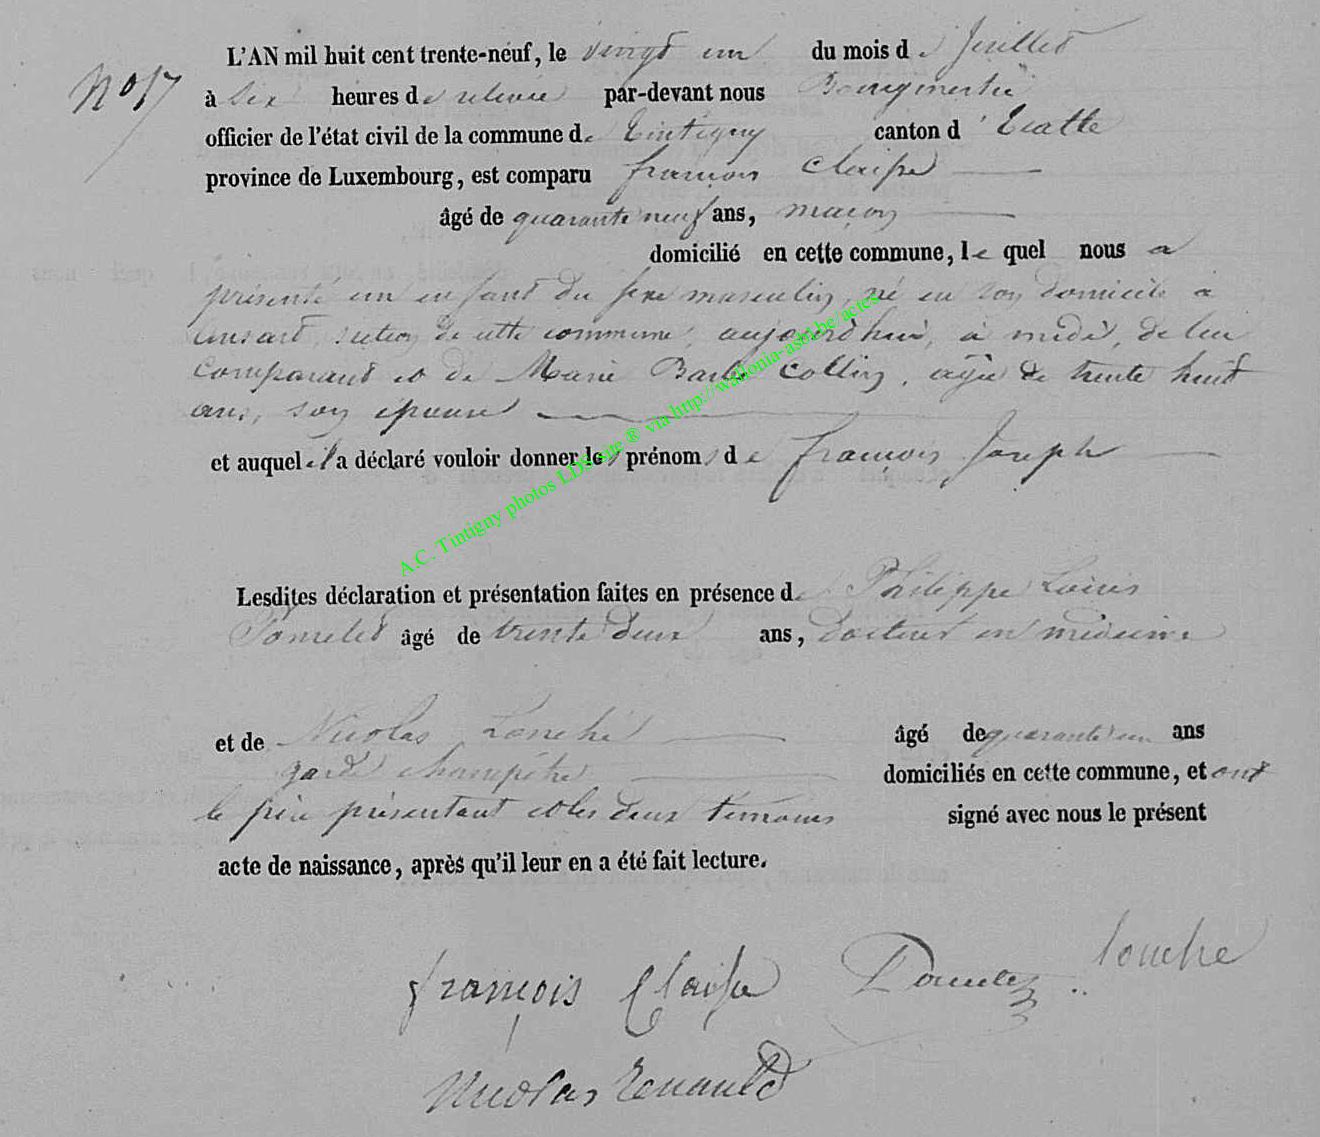 N° 57
L'AN mil huit cent trente-neuf, le vingt un du mois de Juillet
à six heures de relevée par-devant nous Bourgmestre
officier de l'état civil de la commune de Tintigny canton d' Etalle
province de Luxembourg, est comparu françois Claisse
âgé de quarante neuf ans, maçon
domicilié en cette commune, lequel nous a
présenté un enfant du sexe masculin, né en son domicile à
ansart, section de cette commune, aujourd'hui, à midi, de lui
Comparant et de Marie Barbe Collin, agée de trente huit
ans, son épouse
et auquel il a déclaré vouloir donner les prénoms de françois Joseph
Lesdites déclaration et présentation faites en présence de Philippe Louis
âgé de trente deux ans, docteur en médecine
et de Nicolas Louche âgé de quarante un ans
garde champêtre domiciliés en cette commune, et ont
le père présentant et les deux témoins signé avec nous le présent
acte de naissance, après qu'il leur en a été fait lecture.
françois Claisse Louche
Nicolas Renauld
A.C. Tintigny photos LDS site ® via http://wallonia-asbl.be/actes